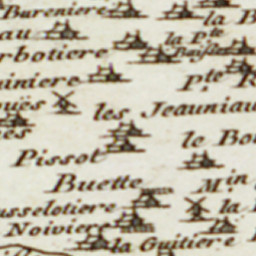 Bureniere
la B
au
la P.te
rbotiere
Buisse
iniere
P.te R
ouës
les Jeauniau
es
le Bou
Pissot
Buette
M.in
usselotiere
la
Noiviere
la Guitiere